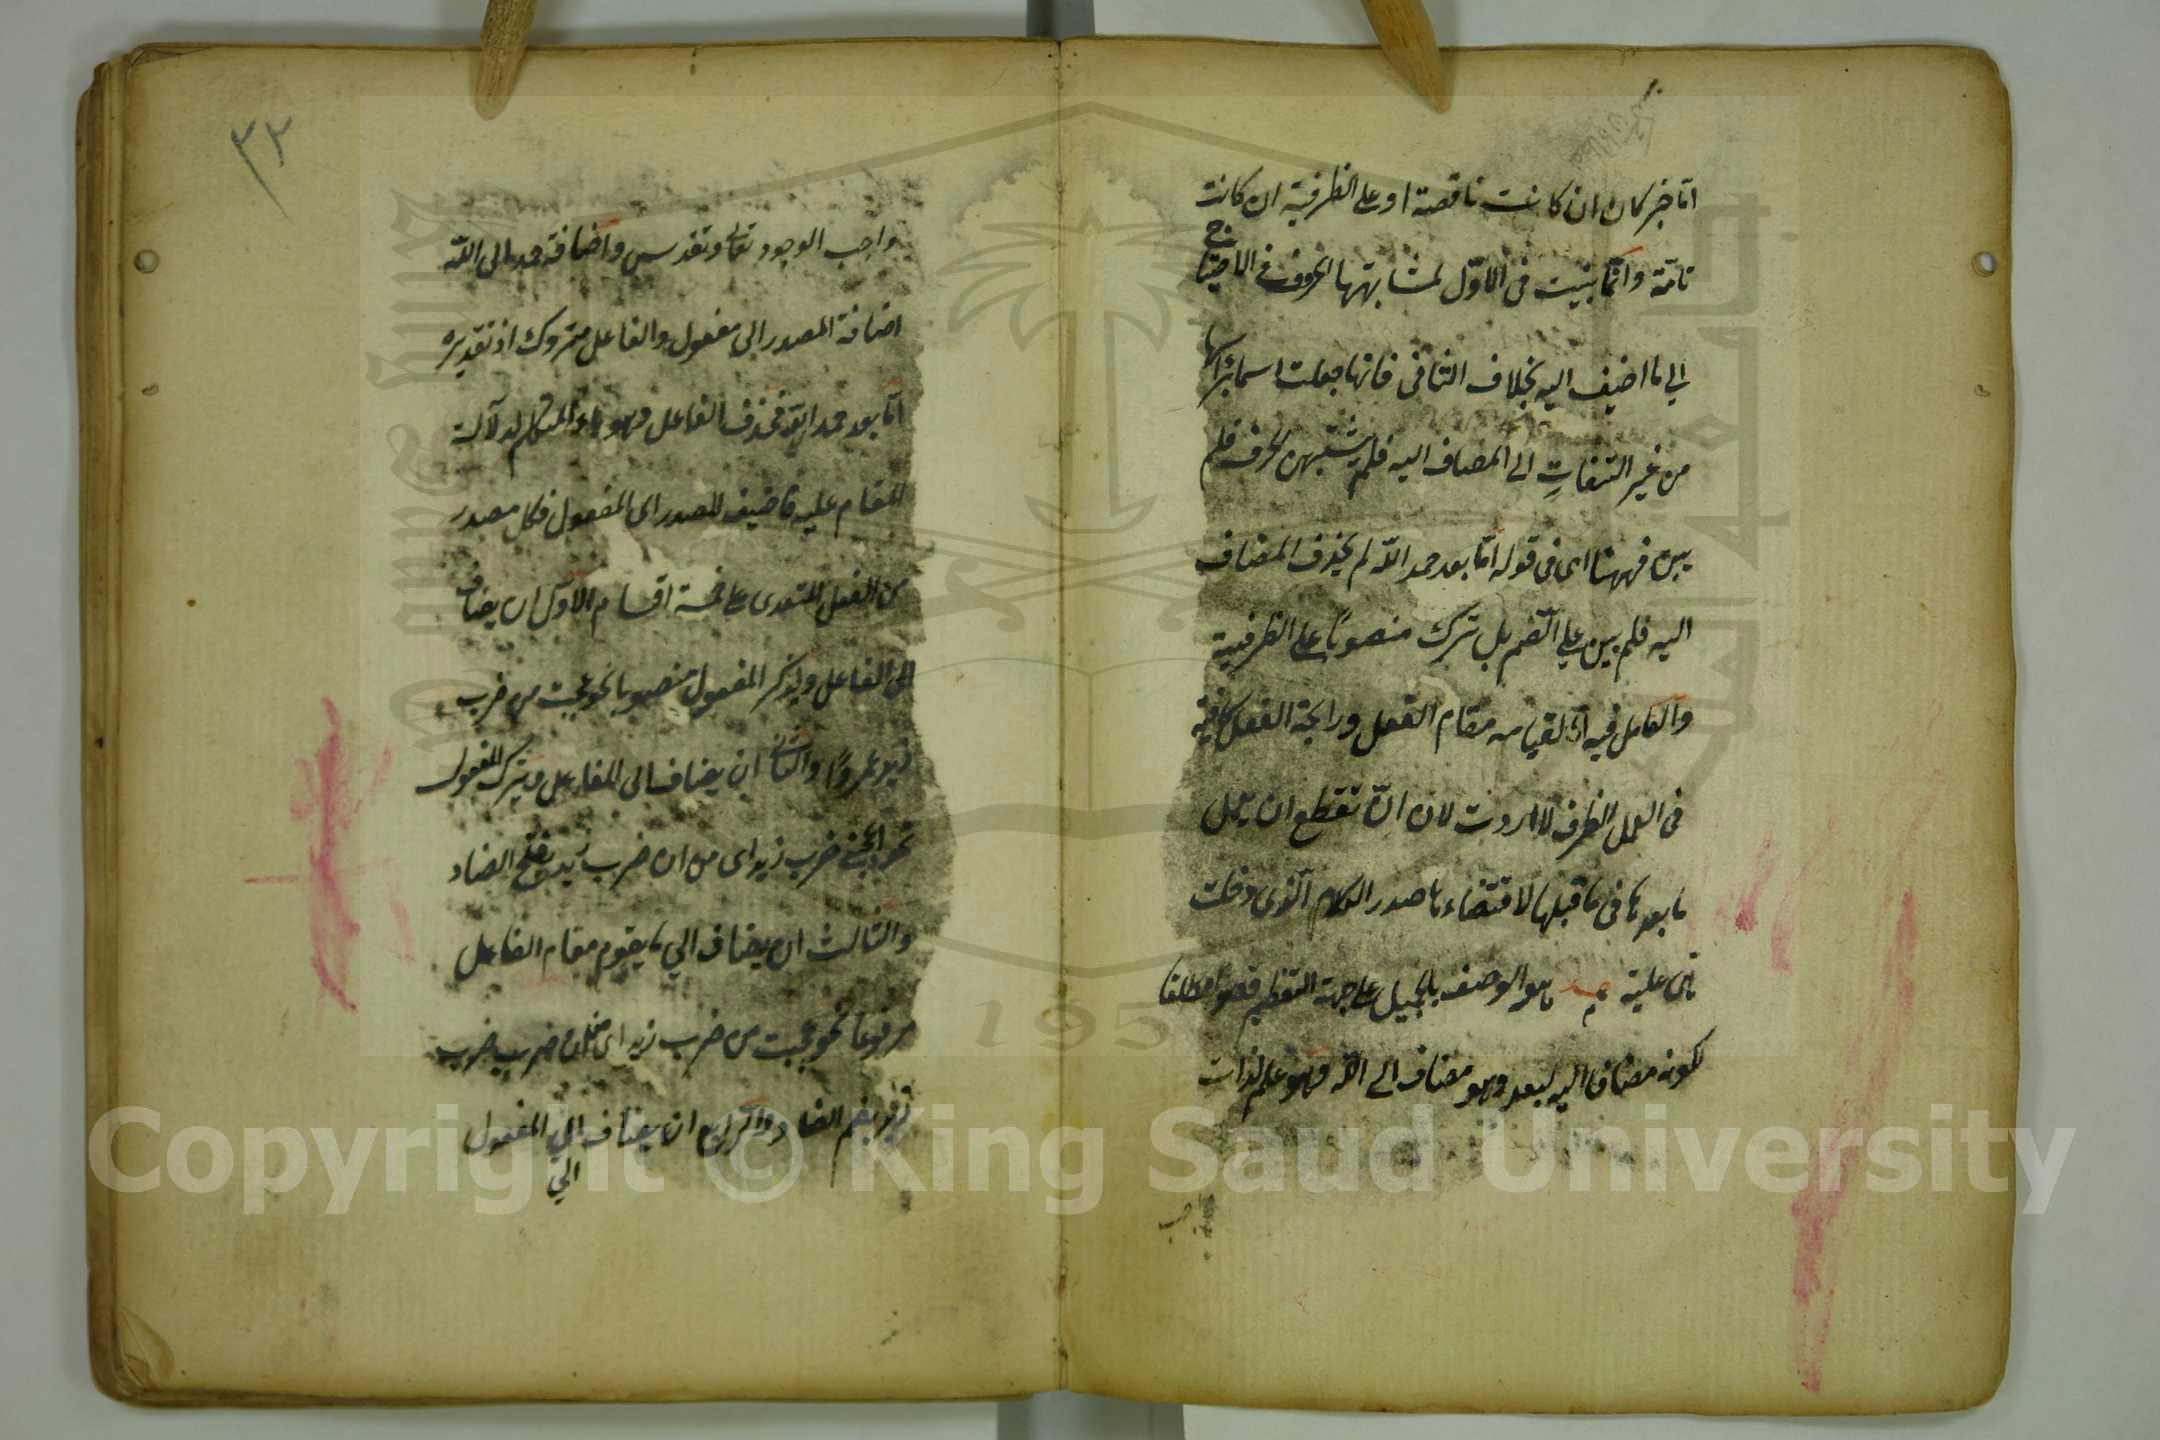 اما خبر كان ان كانت ناقصة او على الظرفية ان كانت
تامة وانما بنيت فى الاول لمشابهتها الحروف فى الاحتياج
الى ما اضيف اليه بخلاف الثانى فانها جعلت اسما برأسها
من غير التفات الى المضاف اليه فلم يشتبهن الحرف فلم
يبن فههنا اى فى قوله اما بعد حمد الله لم يحذف المضاف
اليه فلم يبن على الضم بل ترك منصوبا على الظرفية
والعامل فيه اما لقيامه مقام الفعل ورايحة الفعل كافية
فى العمل الظرف لان تقطع ان يعمل
ما بعدها فى ما قبلها لاقتضاء ما صدر الكلام الذى دخلت
هى عليه حمد ما هو الوصف بالجميل على جهة التعظيم مطلقا
لكونه مضافا اليه لبعد وهو مضاف الى الله وهو علم لذات
واجب
٣٢
واجب الوجود تعالى وتقدس واضافة حمد الى الله
اضافة المصدر الى مفعول والفاعل متروك اذ تقديره
اما بعد حمد الله فحذف الفاعل وهو ياء المتكلم لدلالة
المقام عليه فاضيف المصدر الى المفعول فكل مصدر
من الفعل المتعدى على خمسة اقسام الاول ان يضاف
الى الفاعل ويذكر المفعول منصوبا نحو عجبت من ضرب
زيد عمروا والثانى ان يضاف الى الفاعل ويترك المفعول
نحو ضرب زيد اى من ان ضرب زيد بفتح الضاد
والثالث ان يضاف الى ما يقوم مقام الفاعل
مرفوعا نحو عجبت من ضرب زيد اى من ان ضرب
زيد بضم الضاد والرابع ان يضاف الى المفعول
الى
Copyright © King Saud University
195